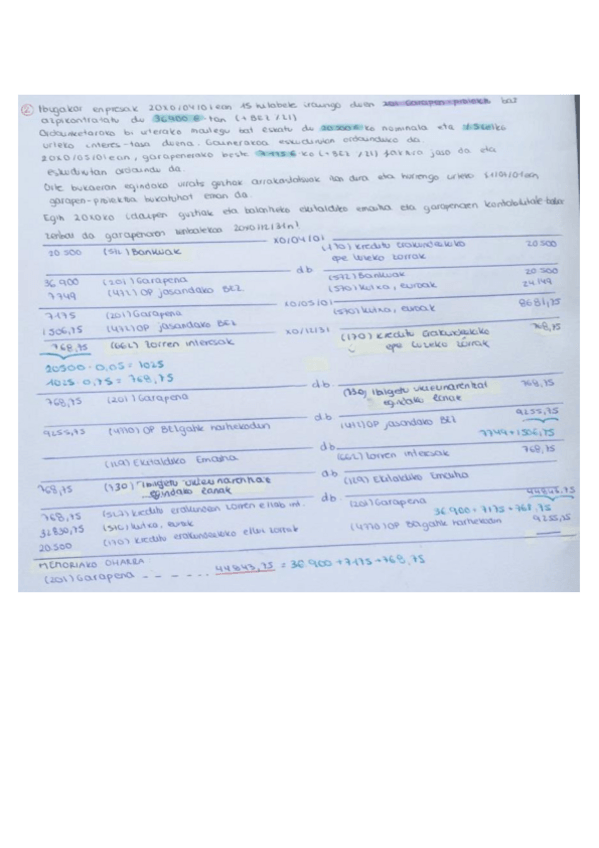 ② Ibugakor enpresak 20X0/04/01ean 15 hilabete iraungo duen garapen-proiektu bat
azpikontratatu du 36.900 € tan (+BEZ /21)
Ordainketarako bi urterako mailegu bat eskatu du 20.500 € ko nominala eta % 5eko
urteko interes-tasa duena. Gainerakoa eskudirutan ordainduko da.
20X0/05/01ean, garapenerako beste 7.175 € ko (+BEZ /21) faktura jaso da eta
eskudirutan ordaindu da.
Urte bukaeran egindako urrats guztiak arrakastatsuak izan dira eta hurrengo urteko
garapen-proiektua bukatutzat eman da.
Egin 20X0ko idazpen guztiak eta balantzeko ekitaldiko emaitza eta garapenaren kontabilitate balio
zenbat da garapenaren 20X0/12/31n!
X0/04/01
20.500 (572) Bankuak (170) Kreditu erakundeekiko epe luzeko zorrak 20.500
d.b
36.900 (201) Garapena (572) Bankuak 20.500
7749 (472) OP jasandako BEZ (570) Kutxa, euroak 24.149
X0/05/01
7175 (201) Garapena (570) Kutxa, euroak 8681,75
1.506,75 (472) OP jasandako BEZ
X0/12/31
768,75 (662) Zorren interesak (170) Kreditu erakundeekiko epe luzeko zorrak 768,75
20500 · 0,05 = 1025
1025 · 0,75 = 768,75
d.b.
768,75 (201) Garapena (730) Ibilgetu ukiezinarentzat egindako lanak 768,75
d.b
9255,75 (4700) OP BEZgatik hartzekodun (472) OP jasandako BEZ 9255,75
7749+1506,75
d.b
(129) Ekitaldiko Emaitza (662) Zorren interesak 768,75
d.b
768,75 (730) Ibilgetu ukiezinarentzat egindako lanak (129) Ekitaldiko Emaitza
d.b.
768,75 (201) Garapena 44843,75
36.900 + 7175 + 768,75
(570) Kutxa, eurak (4700) OP BEZgatik hartzekodun 9255,75
20.500 (170) Kreditu erakundeekiko
MEMORIAKO OHARRA:
(201) Garapena - - - - - - 44843,75 = 36.900 + 7175 + 768,75